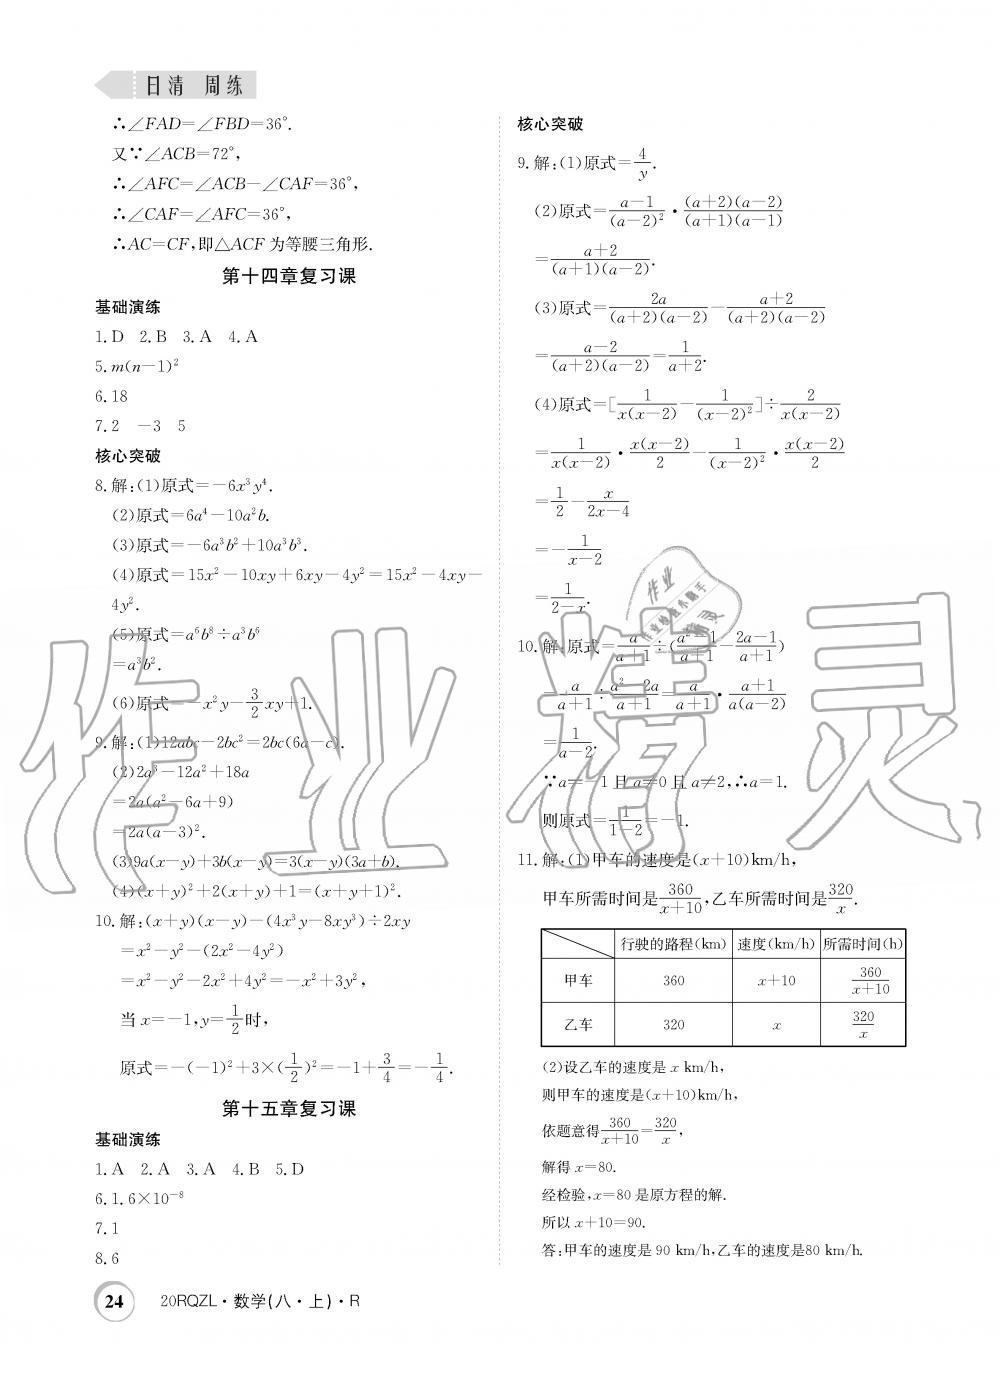 日清 周练
∴∠FAD=∠FBD=36°.
又∵∠ACB=72°,
∴∠AFC=∠ACB-∠CAF=36°,
∴∠CAF=∠AFC=36°,
∴AC=CF,即△ACF为等腰三角形.
第十四章复习课
基础演练
1.D 2.B 3.A 4.A
5.m(n-1)²
6.18
7.2 -3 5
核心突破
8.解:(1)原式=-6x³y⁴.
(2)原式=6a⁴-10a²b.
(3)原式=-6a³b²+10a³b³.
(4)原式=15x²-10xy+6xy-4y²=15x²-4xy-
4y².
(5)原式=a⁶b⁸÷a³b⁶
=a³b².
(6)原式=-x²y-3/2xy+1.
9.解:(1)12abc-2bc²=2bc(6a-c).
(2)2a³-12a²+18a
=2a(a²-6a+9)
=2a(a-3)².
(3)9a(x-y)+3b(x-y)=3(x-y)(3a+b).
(4)(x+y)²+2(x+y)+1=(x+y+1)².
10.解:(x+y)(x-y)-(4x³y-8xy³)÷2xy
=x²-y²-(2x²-4y²)
=x²-y²-2x²+4y²=-x²+3y²,
当x=-1,y=1/2时,
原式=-(-1)²+3×(1/2)²=-1+3/4=-1/4.
第十五章复习课
基础演练
1.A 2.A 3.A 4.B 5.D
6.1.6×10⁻⁸
7.1
8.6
核心突破
9.解:(1)原式=4/y.
(2)原式=(a-1)/(a-2)²·(a+2)(a-2)/(a+1)(a-1)
=(a+2)/(a+1)(a-2).
(3)原式=2a/(a+2)(a-2)-(a+2)/(a+2)(a-2)
=(a-2)/(a+2)(a-2)=1/(a+2).
(4)原式=[1/x(x-2)-1/(x-2)²]÷2/x(x-2)
=1/x(x-2)·x(x-2)/2-1/(x-2)²·x(x-2)/2
=1/2-x/(2x-4)
=-1/(x-2)
=1/(2-x).
10.解:原式=a/(a+1)÷((a²-1)/(a+1)-(2a-1)/(a+1))
=a/(a+1)÷(a²-2a)/(a+1)=a/(a+1)·(a+1)/a(a-2)
=1/(a-2).
∵a≠-1且a≠0且a≠2,∴a=1.
则原式=1/(1-2)=-1.
11.解:(1)甲车的速度是(x+10)km/h,
甲车所需时间是360/(x+10),乙车所需时间是320/x.
行驶的路程(km) 速度(km/h) 所需时间(h)
甲车 360 x+10 360/(x+10)
乙车 320 x 320/x
(2)设乙车的速度是x km/h,
则甲车的速度是(x+10)km/h,
依题意得360/(x+10)=320/x,
解得x=80.
经检验,x=80是原方程的解.
所以x+10=90.
答:甲车的速度是90 km/h,乙车的速度是80 km/h.
24 20RQZL·数学(八·上)·R
作业精灵